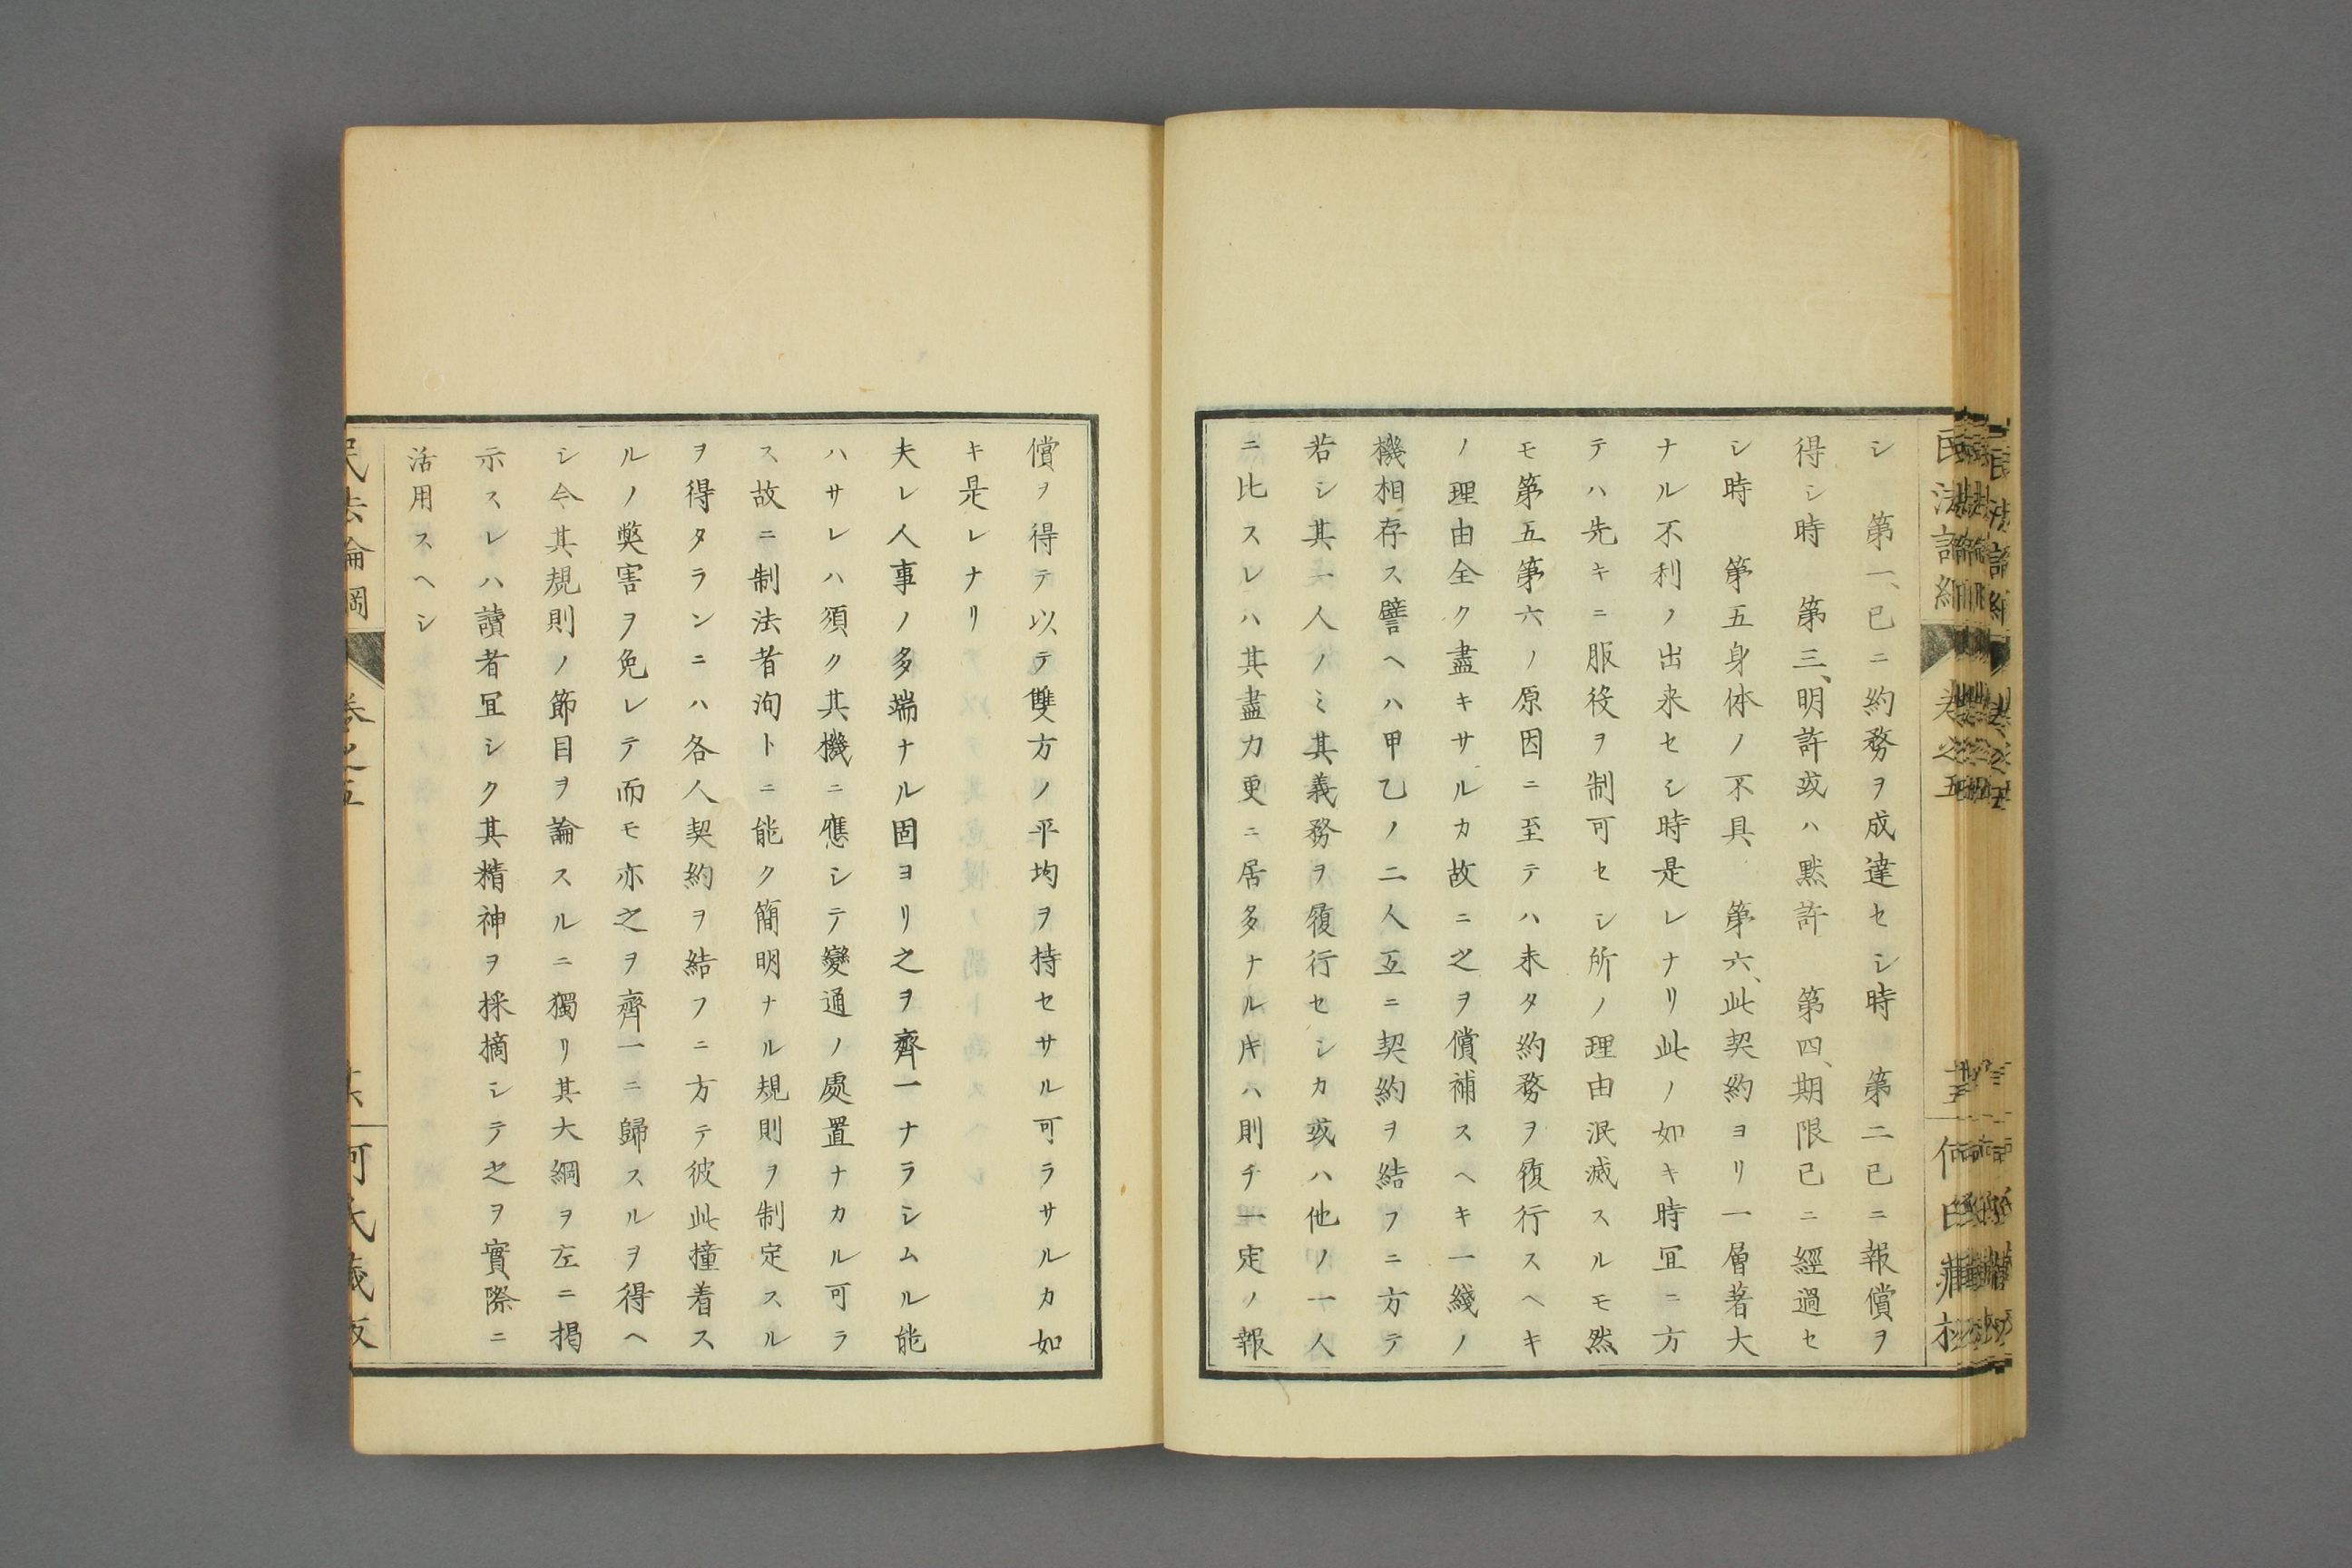 シ　第一、已ニ約務ヲ成達セシ時　第二已ニ報償ヲ
得シ時　第三、明許或ハ黙許　第四、期限已ニ經過セ
シ時　第五身体ノ不具　第六、此契約ヨリ一層著大
ナル不利ノ出来セシ時是レナリ此ノ如キ時冝ニ方
テハ先キニ服役ヲ制可セシ所ノ理由泯滅スルモ然
モ第五第六ノ原因ニ至テハ未タ約務ヲ履行スヘキ
ノ理由全ク盡キサルカ故ニ之ヲ償補スヘキ一綫ノ
機相存ス譬ヘハ甲乙ノ二人互ニ契約ヲ結フニ方テ
若シ其一人ノミ其義務ヲ履行セシカ或ハ他ノ一人
ニ比スレハ其盡力更ニ居多ナル𪜈ハ則チ一定ノ報
償ヲ得テ以テ雙方ノ平均ヲ持セサル可ラサルカ如
キ是レナリ
夫レ人事ノ多端ナル固ヨリ之ヲ齊一ナラシムル能
ハサレハ須ク其機ニ應シテ變通ノ處置ナカル可ラ
ス故ニ制法者洵トニ能ク簡明ナル規則ヲ制定スル
ヲ得タランニハ各人契約ヲ結フニ方テ彼此撞着ス
ルノ獘害ヲ免レテ而モ亦之ヲ齊一ニ歸スルヲ得ヘ
シ今其規則ノ節目ヲ論スルニ獨リ其大綱ヲ左ニ掲
示スレハ讀者冝シク其精神ヲ採摘シテ之ヲ實際ニ
活用スヘシ
民法論綱
卷之五